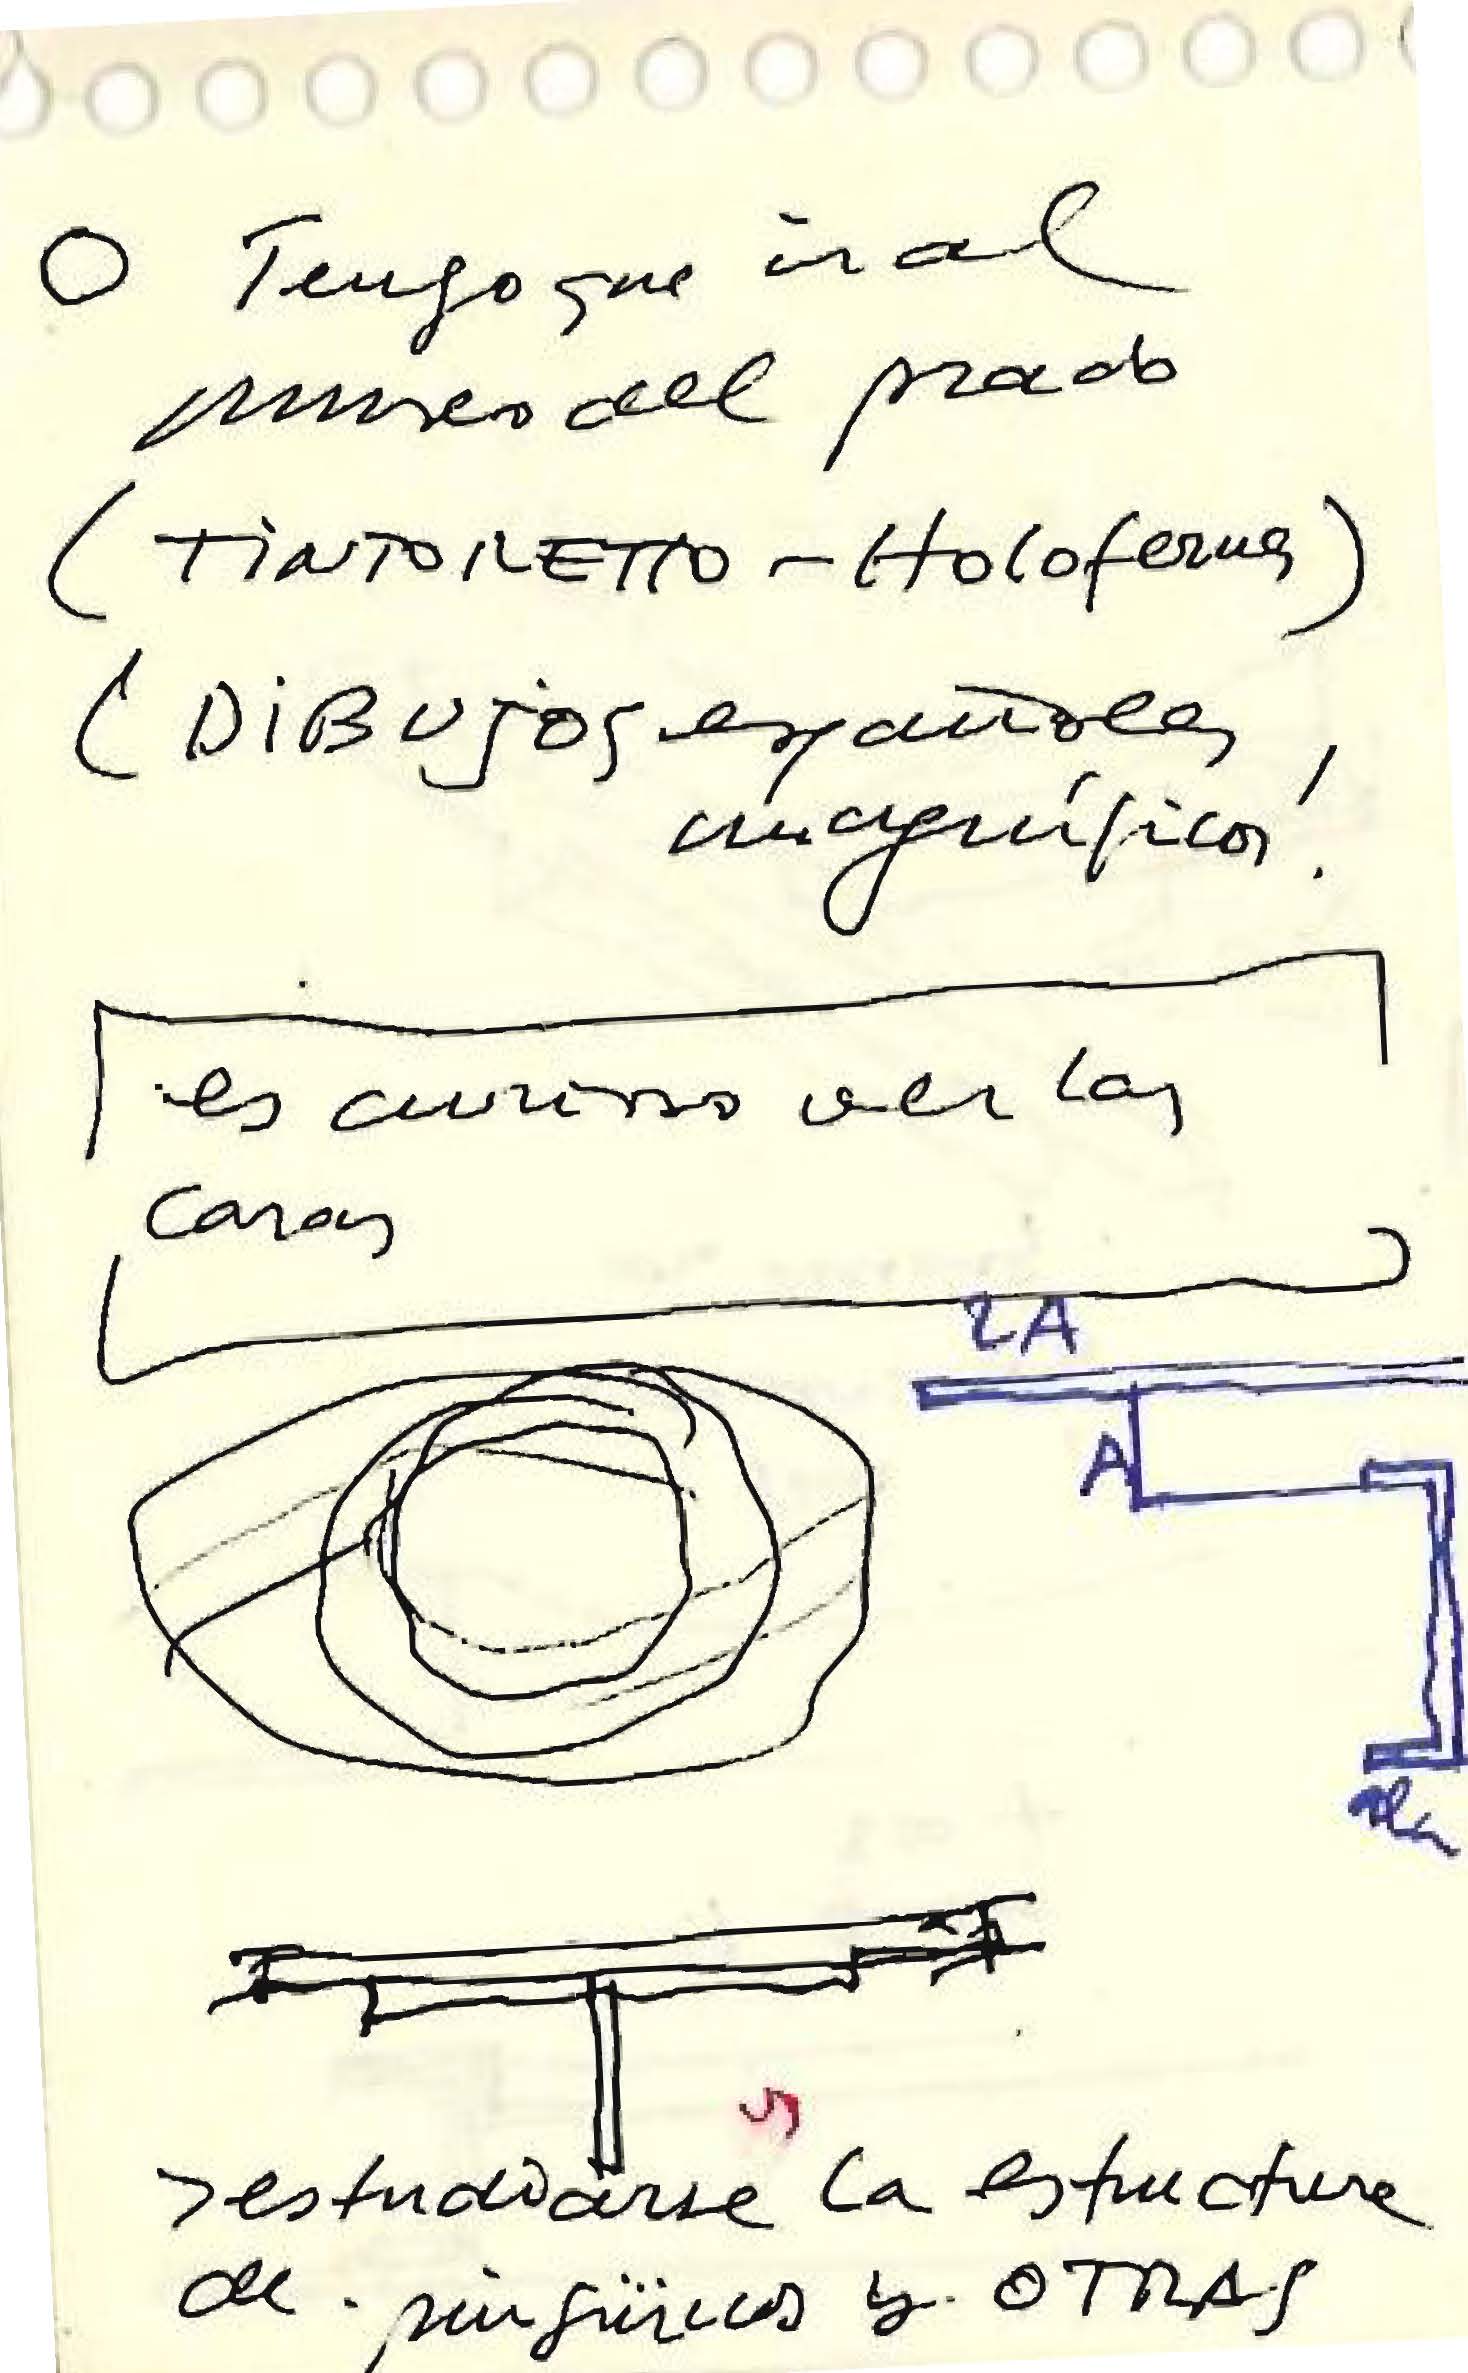 O Tengo que ir al
museo del prado
(TiNTORETTO - Holofernes)
(DiBUjOS españoles
magníficos!
es curioso ver las
caras
2A
A
>estudiarse la estructura
de pingüinos y OTRAS